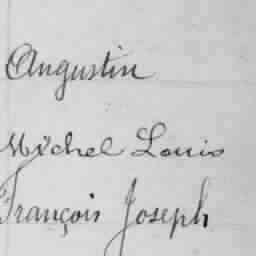 Augustin
Michel Louis
François Joseph